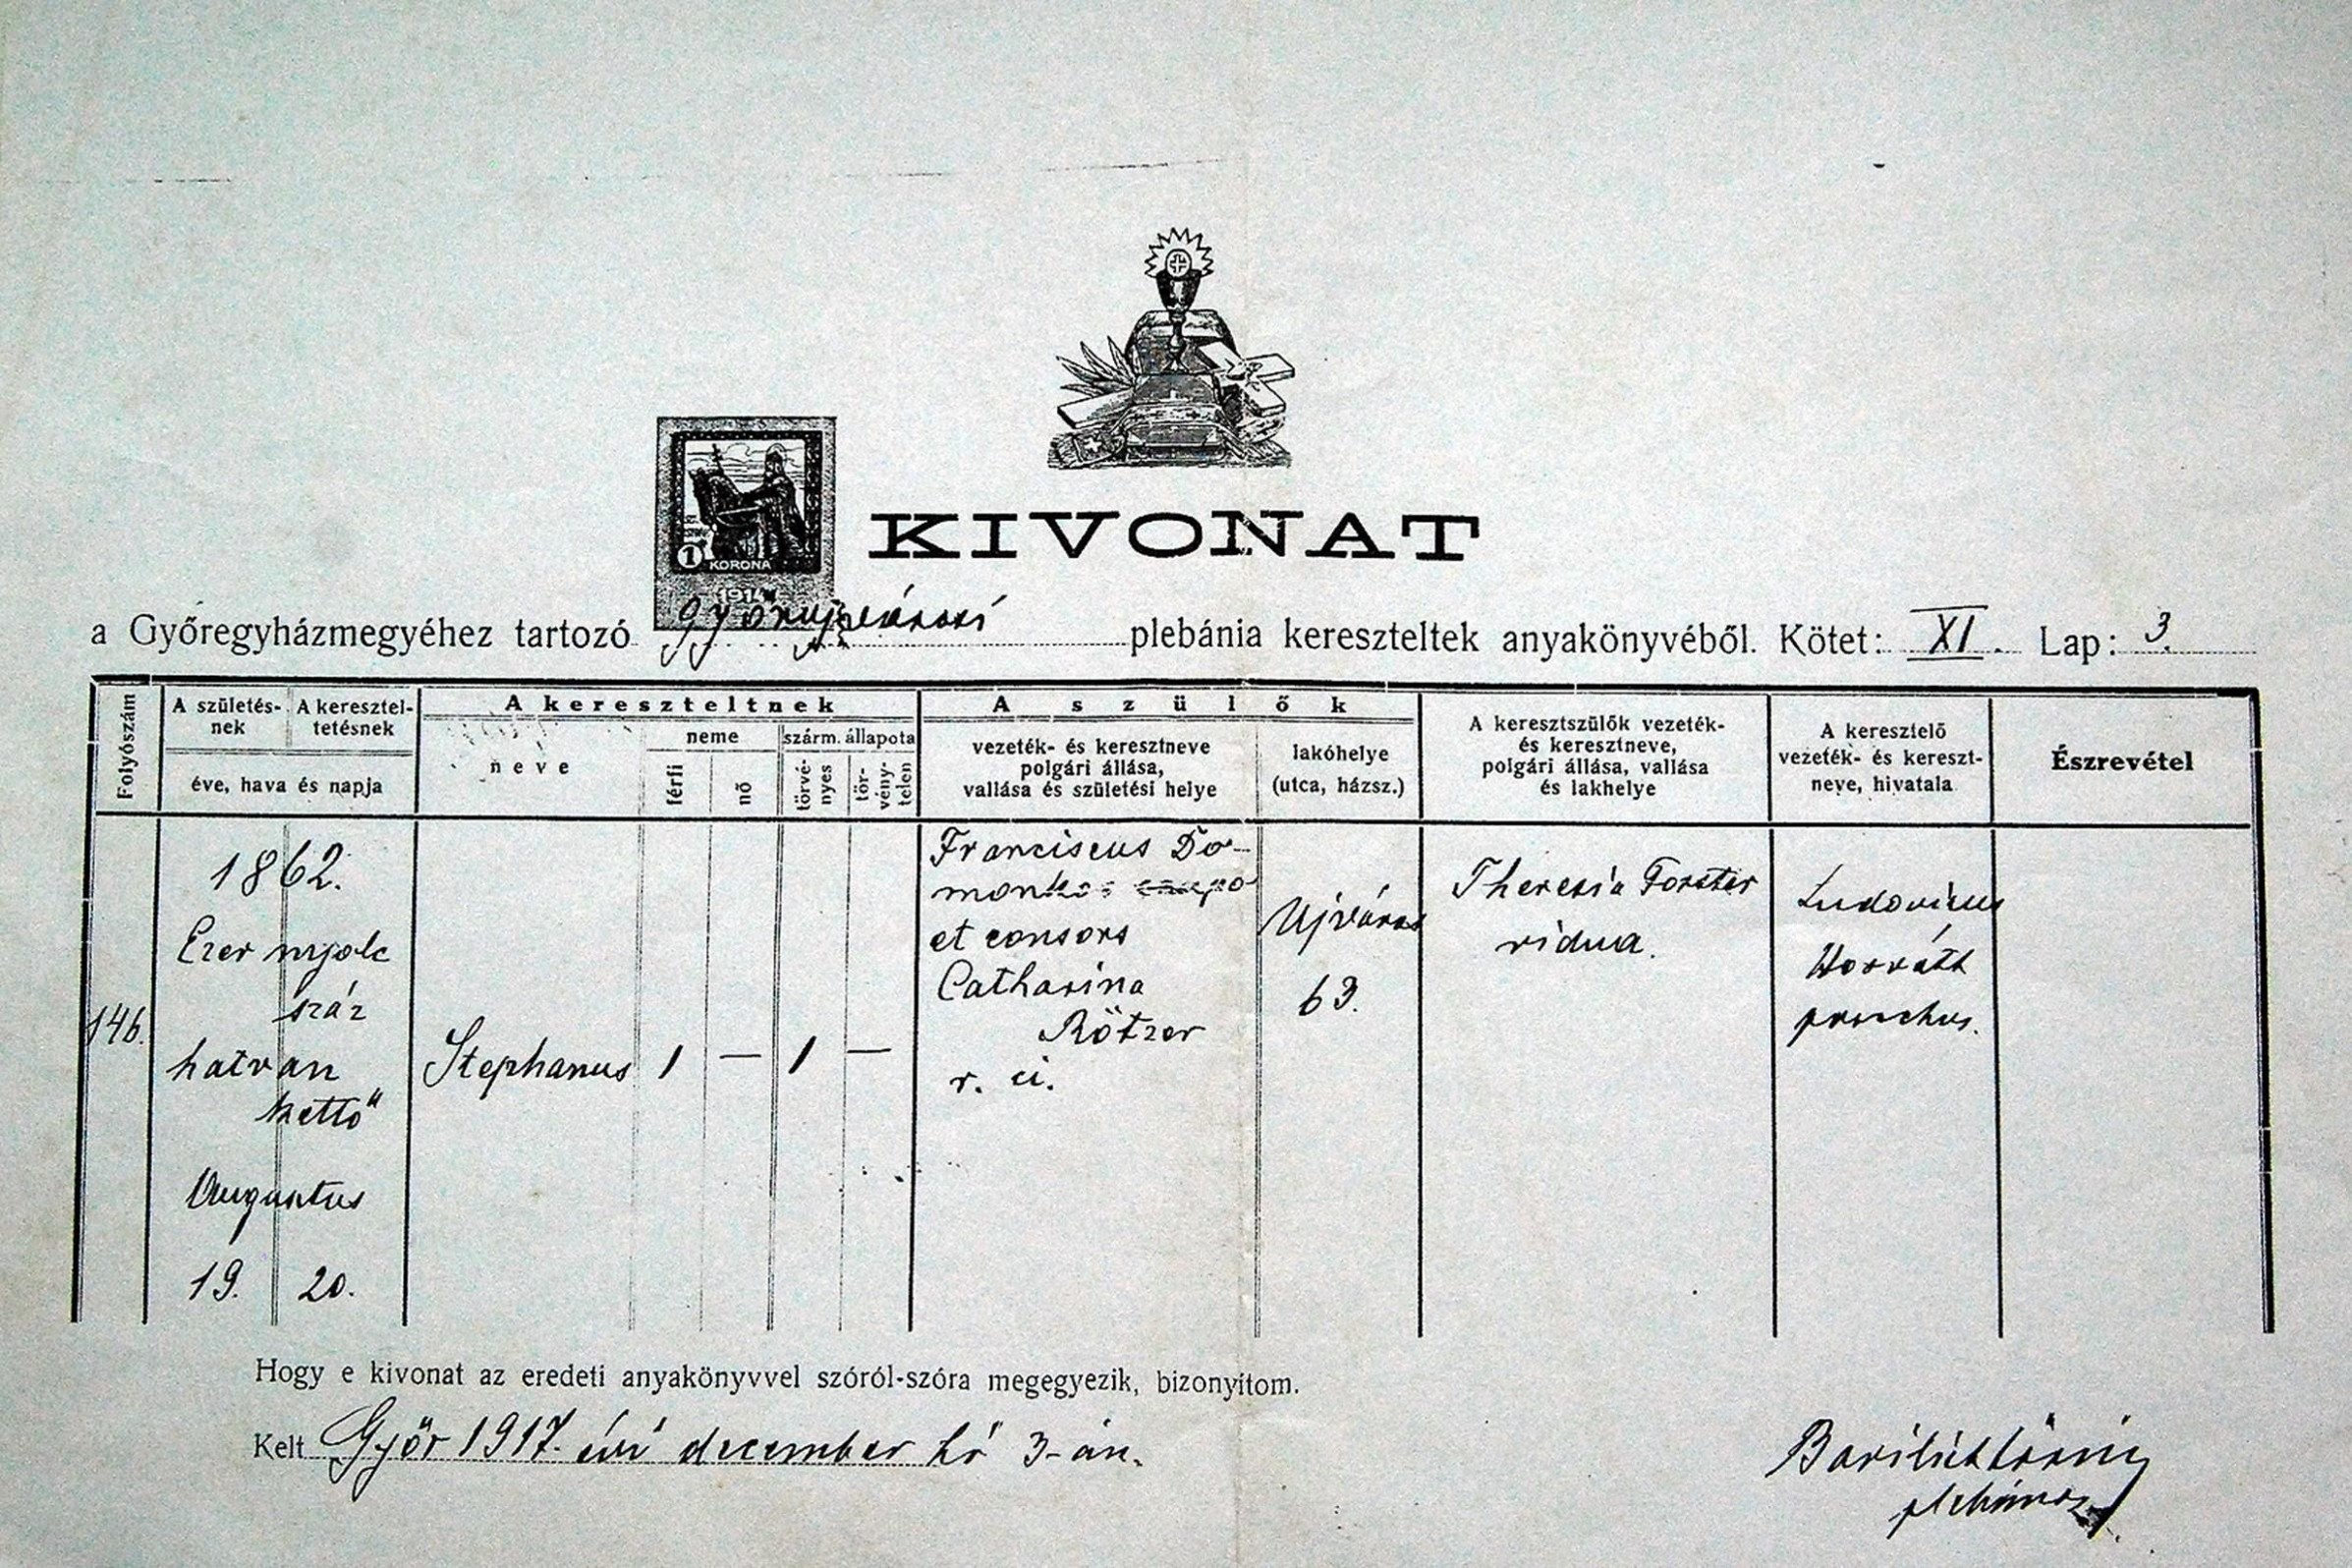 1
KORONA
1914
KIVONAT
a Győregyházmegyéhez tartozó győrujvárosi plebánia kereszteltek anyakönyvéből. Kötet: XI. Lap: 3.
Folyószám
A születés-nek
A keresztel-tetésnek
éve, hava és napja
A kereszteltnek
neve
neme
férfi
nő
szárm. állapota
törvé-nyes
tör-vény-telen
A szülők
vezeték- és keresztneve
polgári állása,
vallása és születési helye
lakóhelye
(utca, házsz.)
A keresztszülők vezeték-
és keresztneve,
polgári állása, vallása
és lakhelye
A keresztelő
vezeték- és kereszt-
neve, hivatala
Észrevétel
146.
1862.
Ezer nyolc
száz
hatvan
kettő
Augustus
19. 20.
Stephanus
1 — 1 —
Franciscus Do-
monkos
et consors
Catharina
Rötzer
r. c.
Ujváros
63.
Theresia Forster
vidua.
Ludovicus
Horváth
parochus.
Hogy e kivonat az eredeti anyakönyvvel szóról-szóra megegyezik, bizonyítom.
Kelt Győr 1917. évi december hó 3-án.
plébános